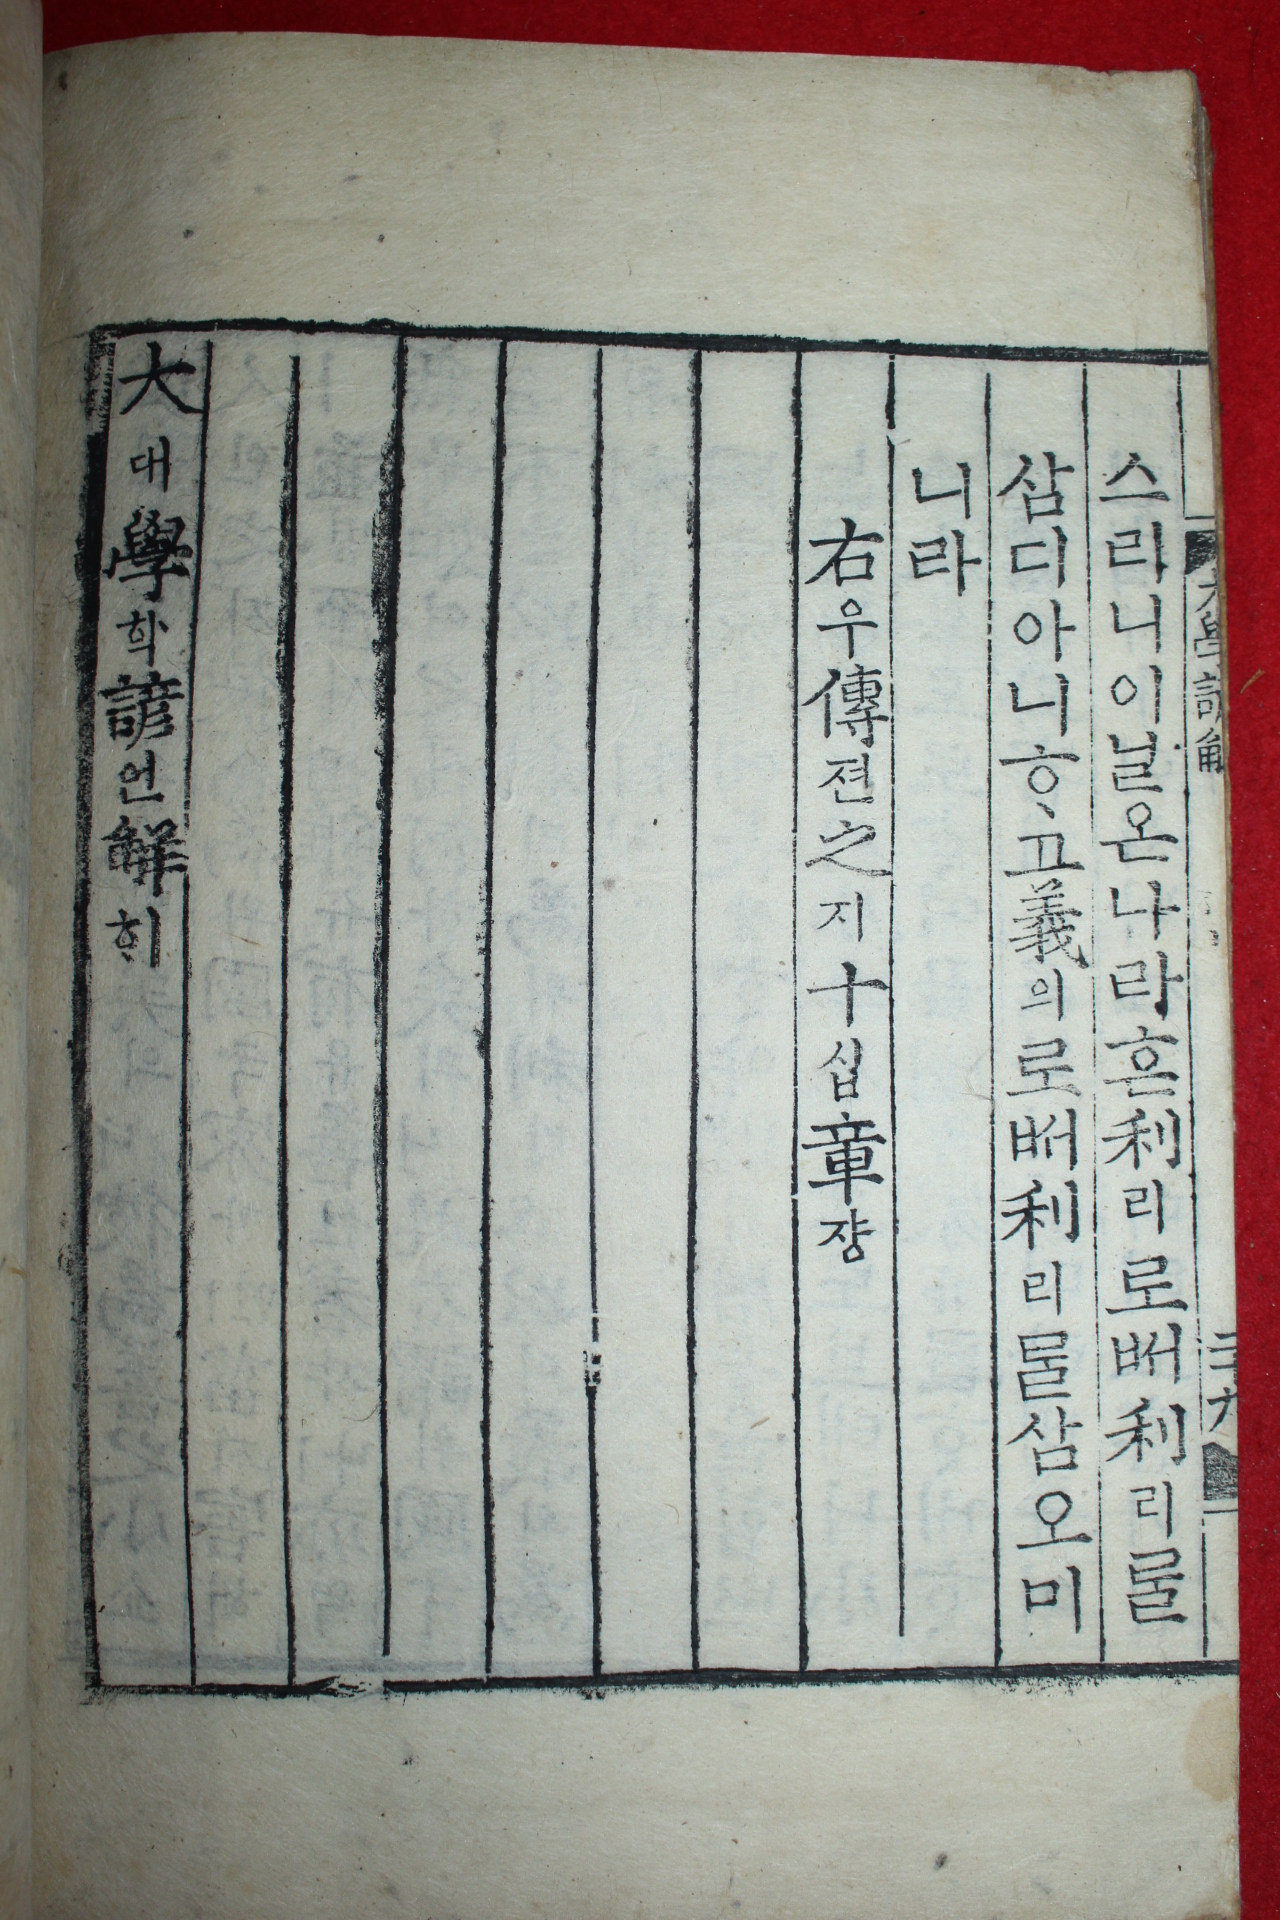 스리니이닐온나라흔利리로ᄡᅥ利리ᄅᆞᆯ
삼디아니ᄒᆞ고義의로ᄡᅥ利리ᄅᆞᆯ삼오미
니라
右우傳젼之지十십章쟝
大대學학諺언解ᄒᆡ
大學諺解
二十九